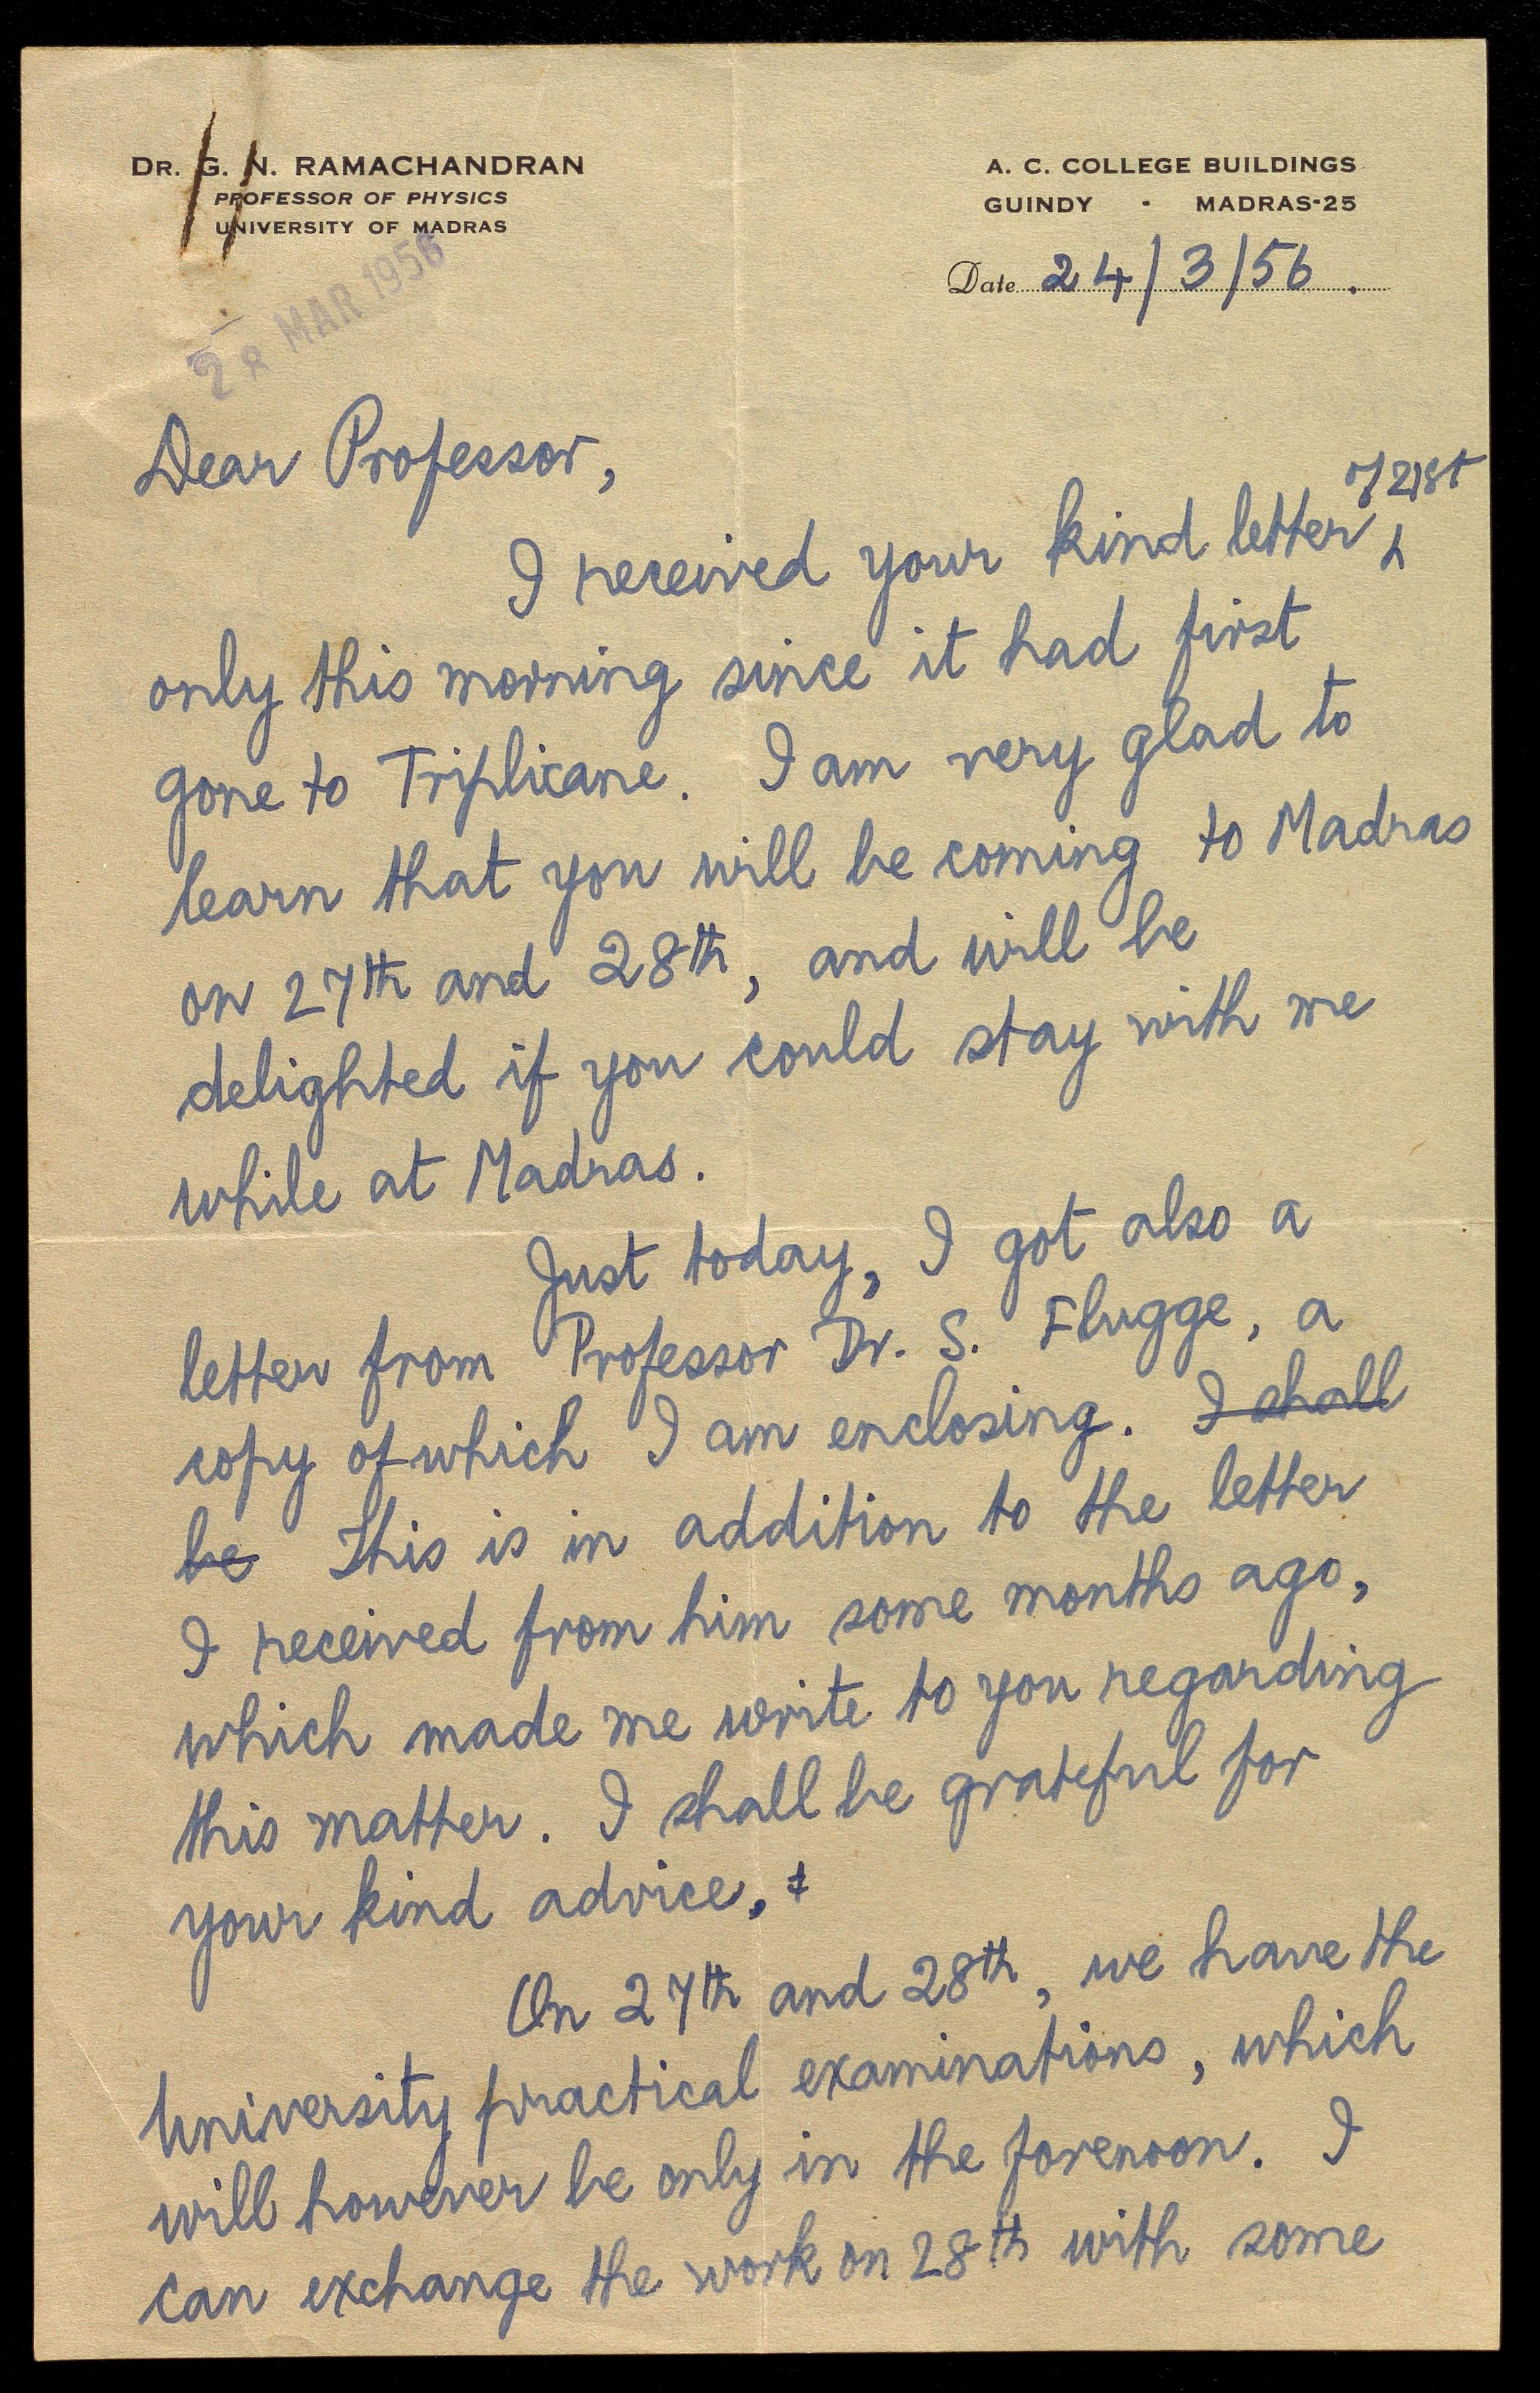 DR. G. N. RAMACHANDRAN
PROFESSOR OF PHYSICS
UNIVERSITY OF MADRAS
A. C. COLLEGE BUILDINGS
GUINDY - MADRAS-25
Date 24/3/56.
MAR 1956
Dear Professor,
I received your kind letter of 21st
only this morning since it had first
gone to Triplicane. I am very glad to
learn that you will be coming to Madras
on 27th and 28th, and will be
delighted if you could stay with me
while at Madras.
Just today, I got also a
letter from Professor Dr. S. Flugge, a
copy of which I am enclosing. I shall
be This is in addition to the letter
I received from him some months ago,
which made me write to you regarding
this matter. I shall be grateful for
your kind advice.
On 27th and 28th, we have the
University practical examinations, which
will however be only in the forenoon. I
can exchange the work on 28th with some